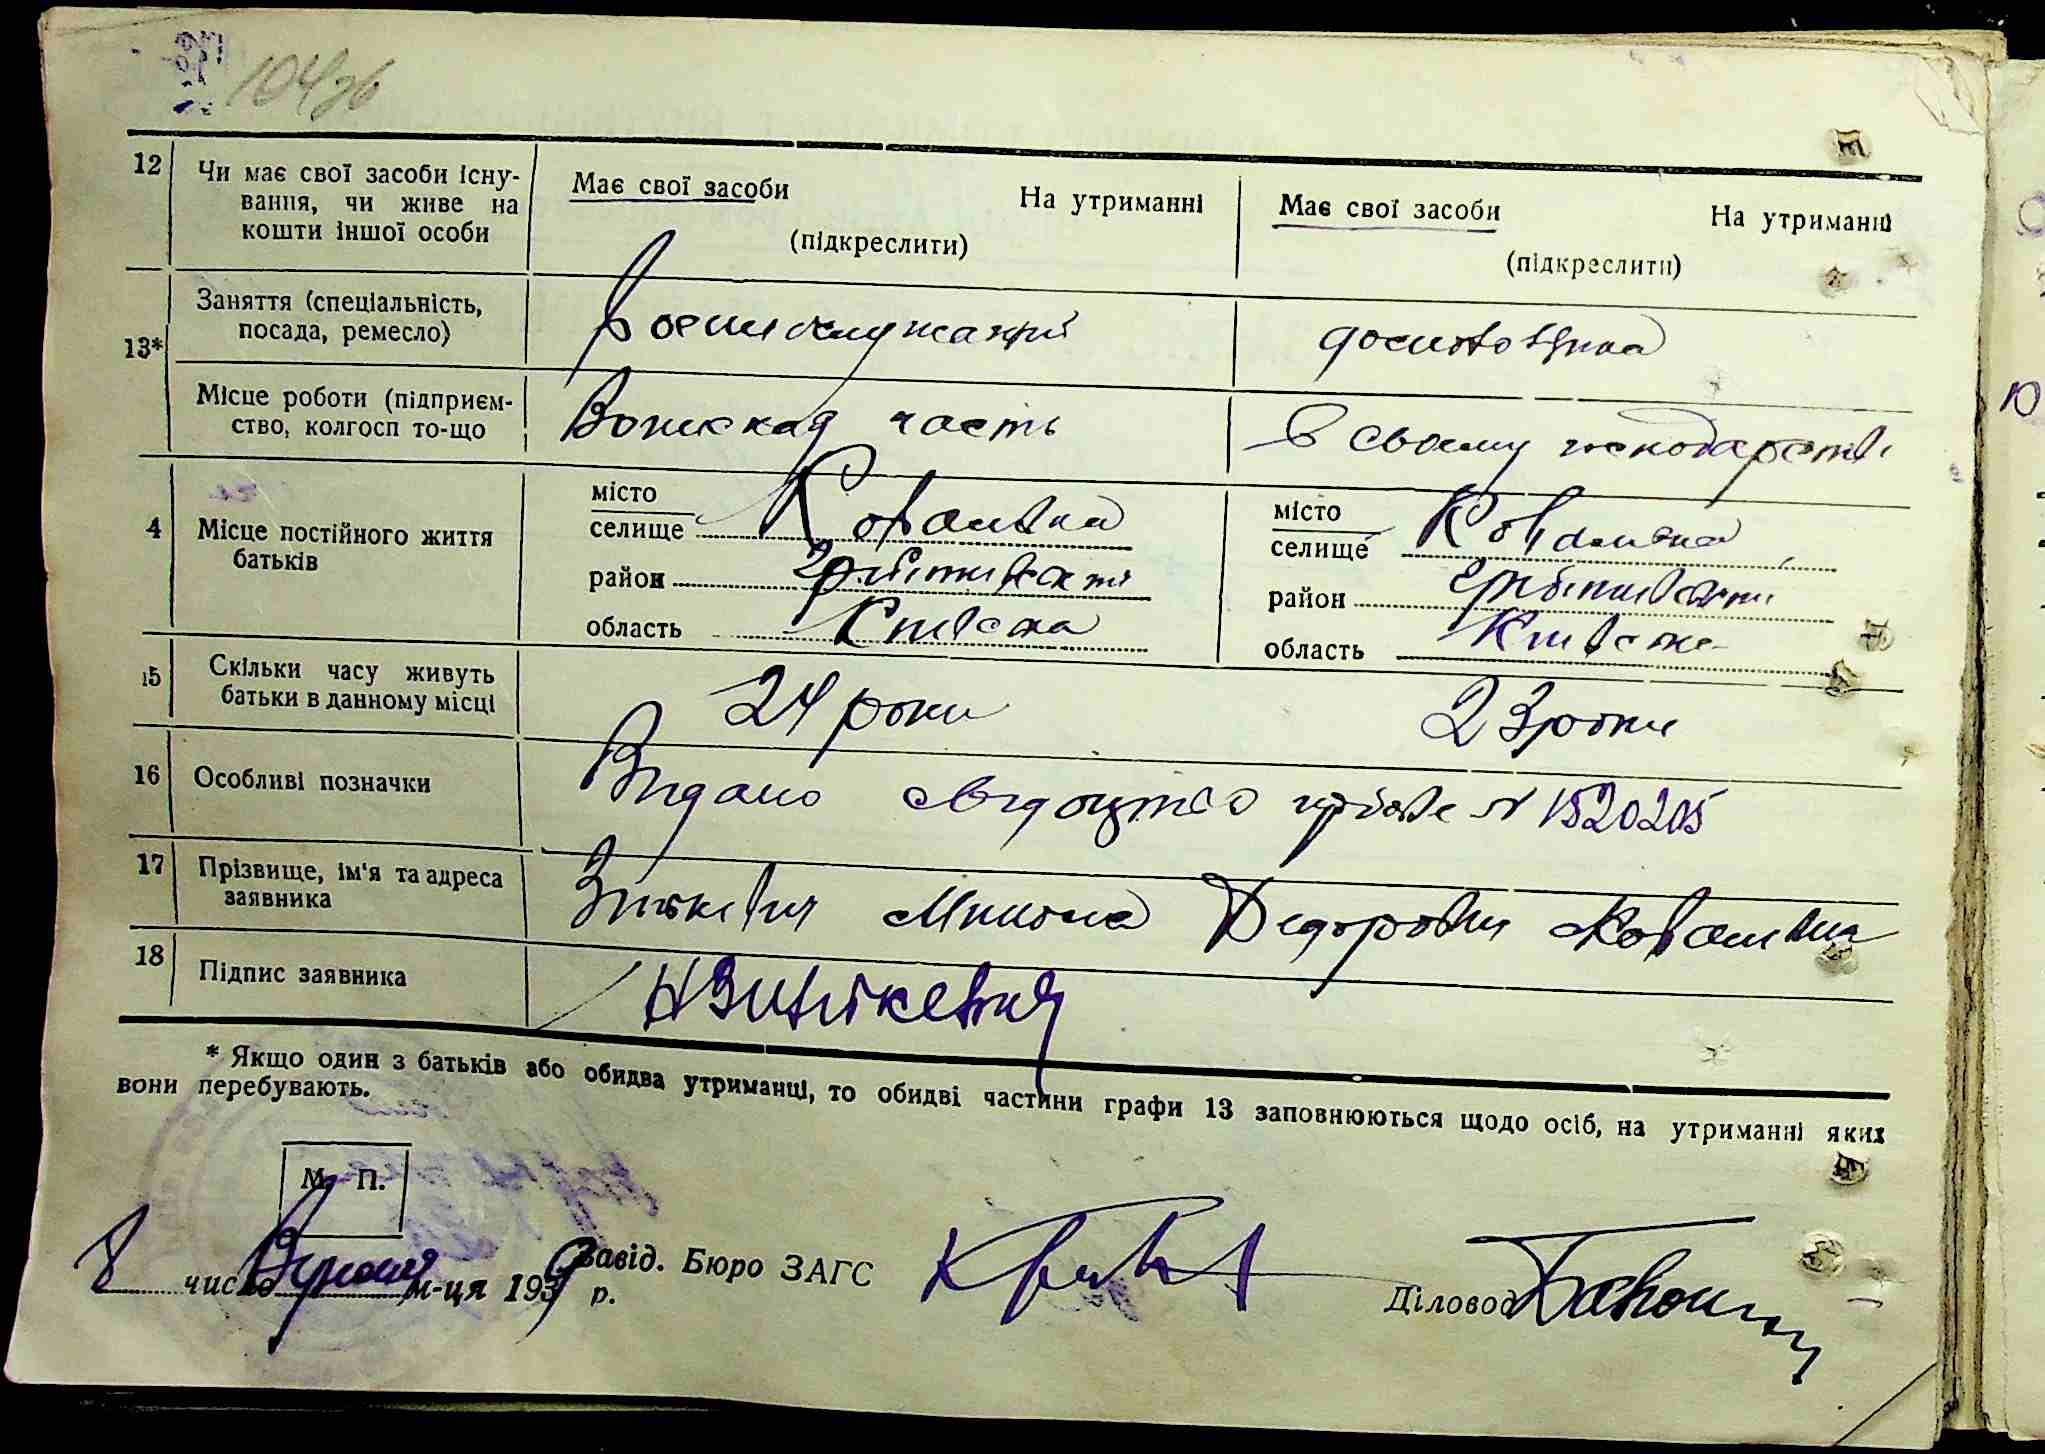 104зв
12 Чи має свої засоби існу-
вання, чи живе на
кошти іншої особи
Має свої засоби На утриманні
(підкреслити)
Має свої засоби На утриманні
(підкреслити)
13*
Заняття (спеціальність,
посада, ремесло)
Воєнослужащий
домовозяйка
Місце роботи (підприєм-
ство, колгосп то-що
Воінская часть
в своєму господарстві
4 Місце постійного життя
батьків
місто
селище Ковалівка
район Гребінківський
область Київська
місто
селище Ковалівка
район Гребінківський
область Київська
15 Скільки часу живуть
батьки в данному місці
24 роки
23 роки
16 Особливі позначки
Видано свідоцтво N 1520205
17 Прізвище, ім'я та адреса
заявника
Зінькевич Микола Федорович Ковалівка
18 Підпис заявника
НЗинькевич
* Якщо один з батьків або обидва утриманці, то обидві частини графи 13 заповнюються щодо осіб, на утриманні яких
вони перебувають.
М. П.
8 число м-ця 1939 р.
Завід. Бюро ЗАГС
Діловод